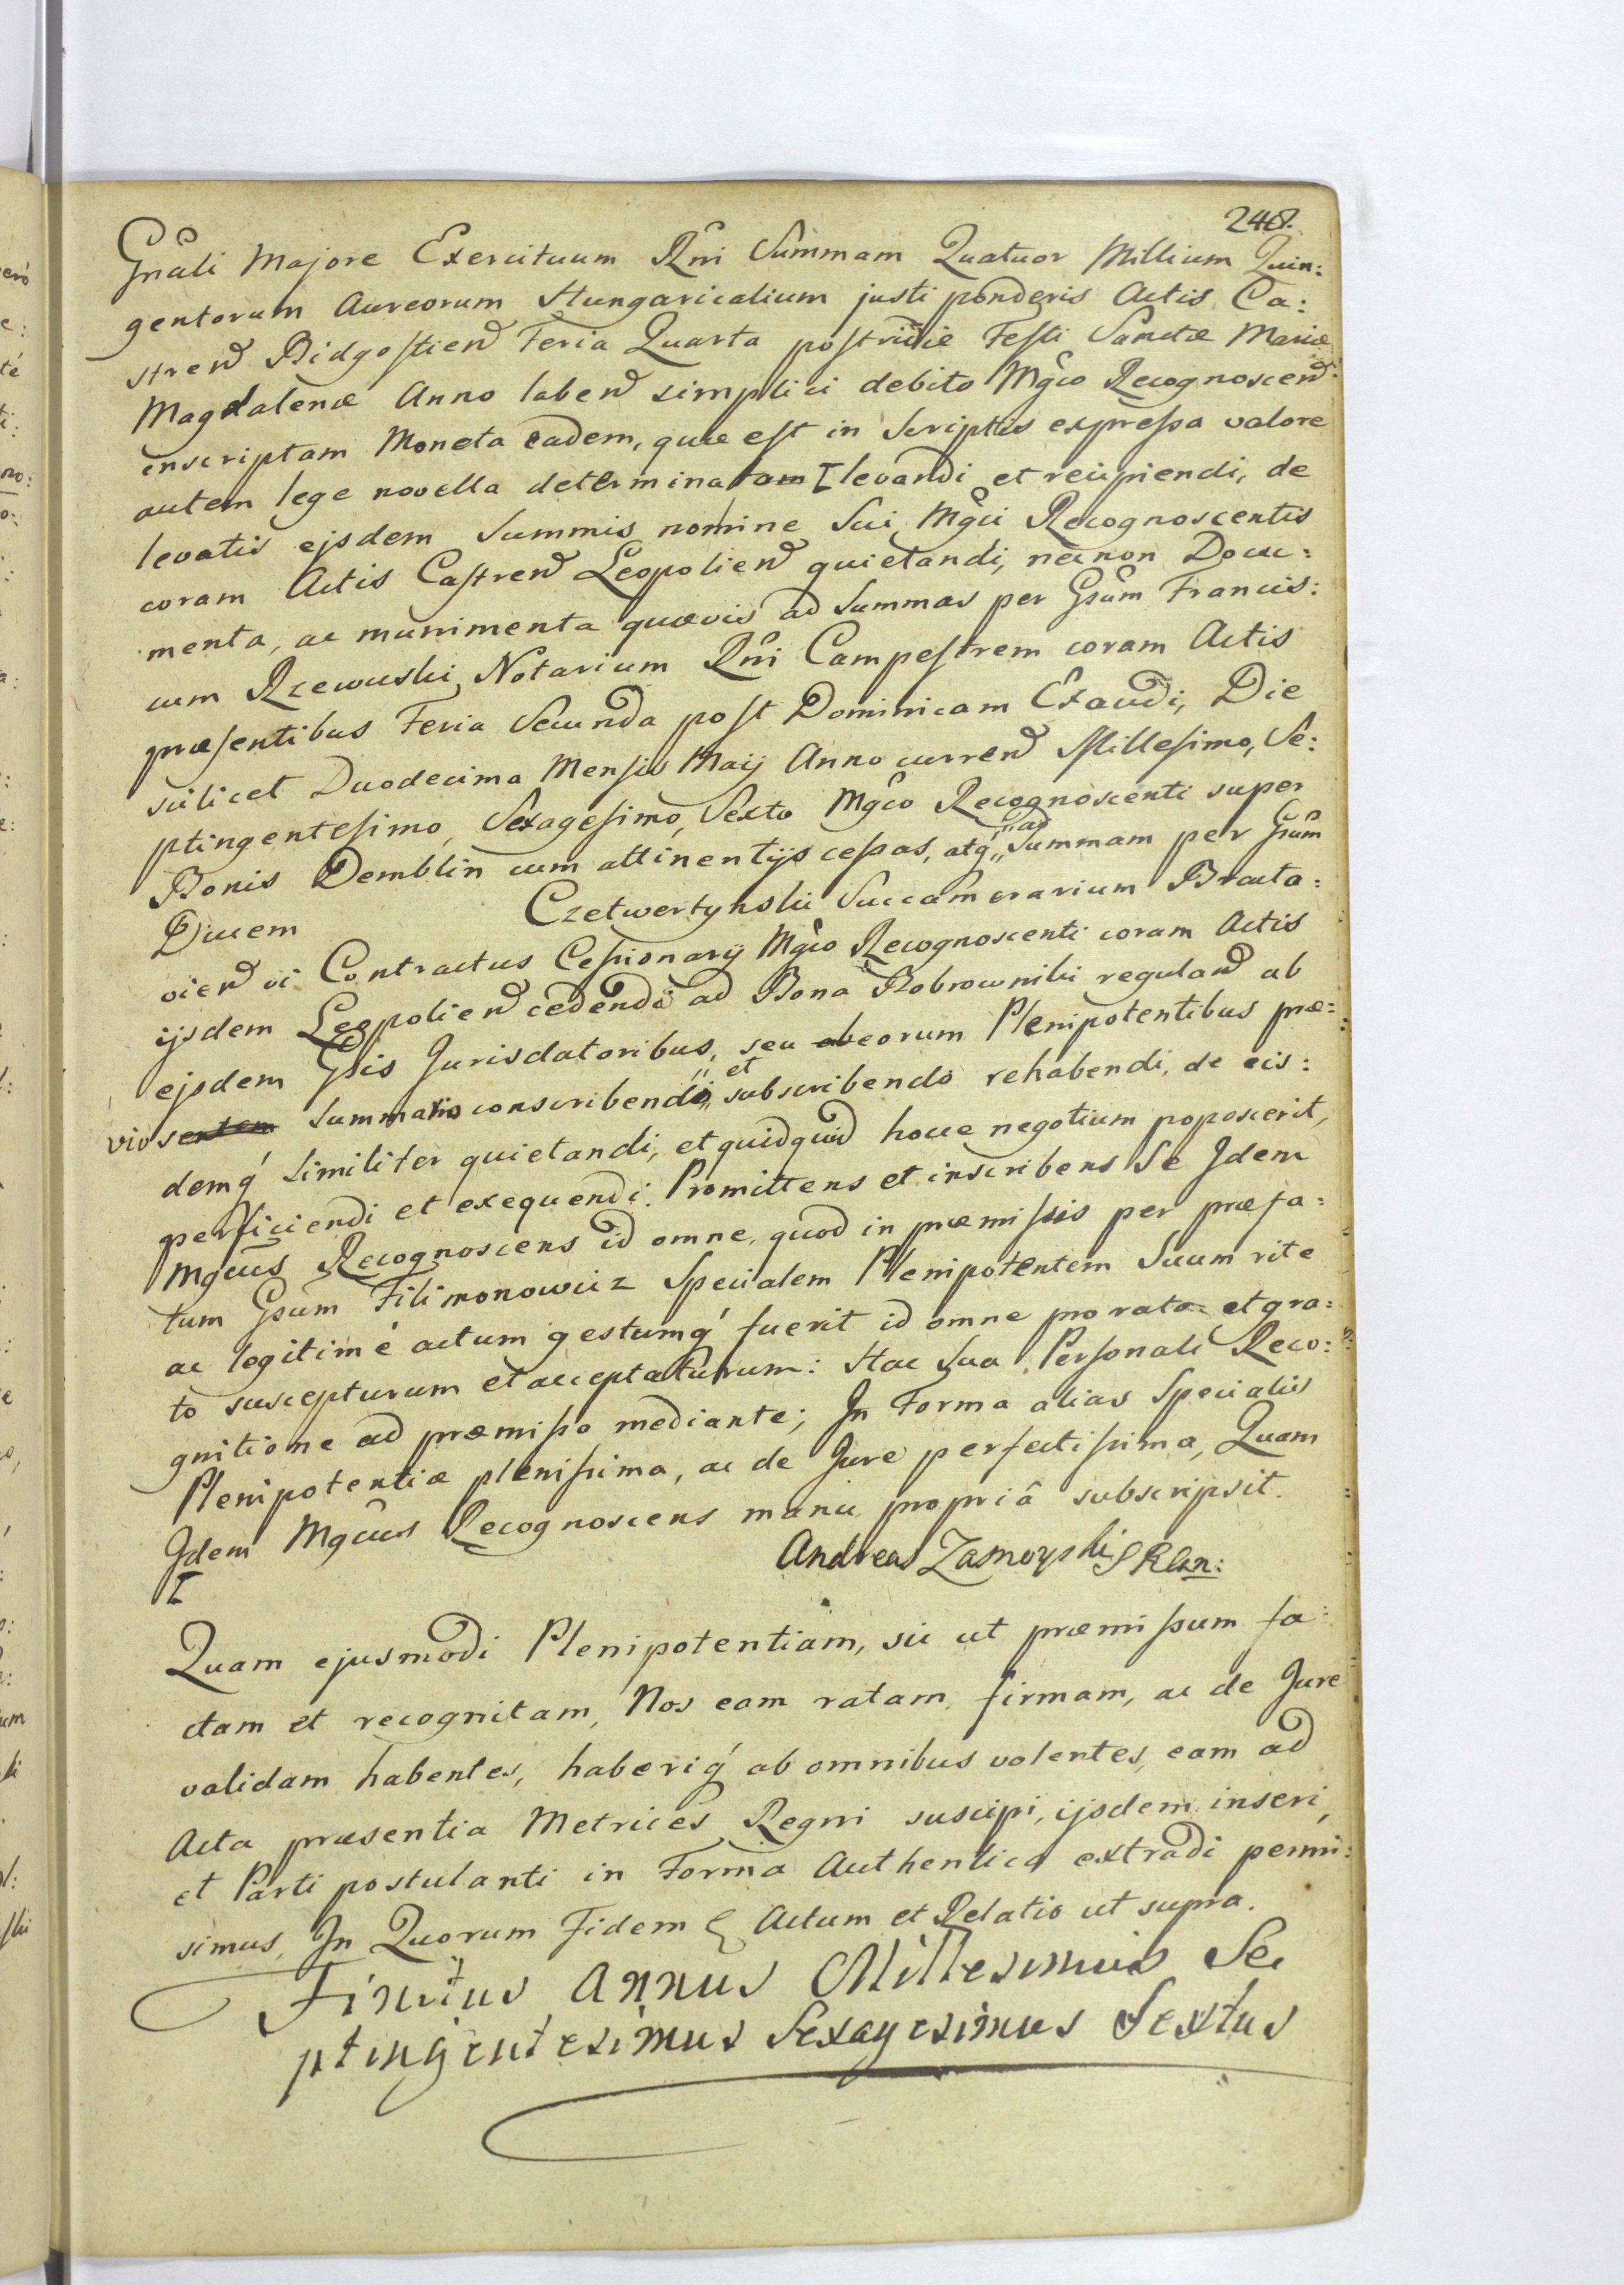 248.
Gnali Majore Exercituum Rni Summam Quatuor Millium Quin:
gentorum Aureorum Hungaricalium justi ponderis Actis Ca:
stren Bidgostien Feria Quarta postridie Festi Sanctæ Mariæ
Magdalenæ Anno laben simplici debito Mgco Recognoscen
inscriptam Moneta eadem, quæ est in Scriptis expressa valore
autem lege novella determinatam levandi et recipiendi, de
levatis ejsdem Summis nomine Sui Mgci Recognoscentis
coram Actis Castren Leopolien quietandi, necnon Docu:
menta, ac munimenta quævis ad Summas per Gsum Francis:
cum Rzewuski Notarium Rni Campestrem coram Actis
præsentibus Feria Secunda post Dominicam Exaudi, Die
scilicet Duodecima Mensis Maij Anno curren Millesimo, Se:
ptingentesimo, Sexagesimo, Sexto Mgco Recognoscenti super
Bonis Demblin cum attinentijs cessas, atq́ ad Summam per Gsum
Ducem Czetwertynski Succamerarium Bracla:
vien vi Contractus Cessionarij Mgco Recognoscenti coram Actis
ijsdem Leopolien cedendi ad Bona Bobrowniki regulan ab
ejsdem Gsis Jurisdatoribus, seu ab eorum Plenipotentibus præ:
vios Summario conscribendo et subscribendo rehabendi, de eis:
demq́ similiter quietandi, et quidquid hocce negotium poposcerit,
perficiendi et exequendi. Promittens et inscribens Se Jdem
Mgcus Recognoscens id omne, quod in præmissis per præfa:
tum Gsum Filimonowicz Specialem Plenipotentem Suum rite
ac legitimè actum gestumq́ fuerit id omne pro rato et gra:
to suscepturum et acceptaturum: Hac Sua Personali Reco:
gnitione ad præmissa mediante; Jn Forma alias Specialis
Plenipotentiæ plenissima, ac de Jure perfectissima, Quam
Jdem Mgcus Recognoscens manu propriâ subscripsit.
Andreas Zamoyski
Quam ejusmodi Plenipotentiam, sic ut præmissum fa:
ctam et recognitam, Nos eam ratam, firmam, ac de Jure
validam habentes, haberiq́ ab omnibus volentes, eam ad
Acta præsentia Metrices Regni suscipi, ijsdem inseri,
et Parti postulanti in Forma Authentica extradi permi:
simus, Jn Quorum Fidem & Actum et Relatio ut supra.
Finitus Annus Millesimus Se
ptingentesimus Sexagesimus Sextus